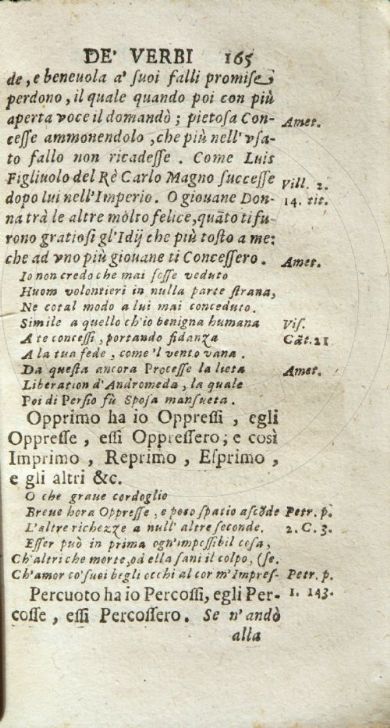 DE' VERBI 165
de, e beneuola a' suoi falli promise
perdono, il quale quando poi con più
aperta voce il domandò; pietosa Con-
cesse ammonendolo, che più nell'vsa- Amet.
to fallo non ricadesse. Come Luis
Figliuolo del Rè Carlo Magno successe
dopo lui nell'Imperio. O giouane Don- Vill. 2.
na trà le altre mólto felice, quãto ti fu- 14. tit.
rono gratiosi gl'Idij che più tosto a me:
che ad vno più giouane ti Concessero. Amet.
Io non credo che mai fosse veduto
Huom volontieri in nulla parte strana,
Ne cotal modo a lui mai conceduto.
Simile a quello ch'io benigna humana Vis.
A te concessi, portando fidanza Cãt. 21
A la tua fede, come 'l vento vana.
Da questa ancora Processe la lieta Amet.
Liberation d'Andromeda, la quale
Poi di Persio fù Sposa mansueta.
Opprimo ha io Oppressi, egli
Oppresse, essi Oppressero; e così
Imprimo, Reprimo, Esprimo,
e gli altri &c.
O che graue cordoglio
Breue hora Oppresse, e poco spatio ascõde Petr. p.
L'altre richezze a null' altre seconde. 2. C. 3.
Esser può in prima ogn'impossibil cosa,
Ch'altri che morte, od ella sani il colpo, (se.
Ch'amor co'suoi begli occhi al cor m'Impres- Petr. p.
Percuoto ha io Percossi, egli Per- 1. 143.
cosse, essi Percossero. Se n'andò
alla